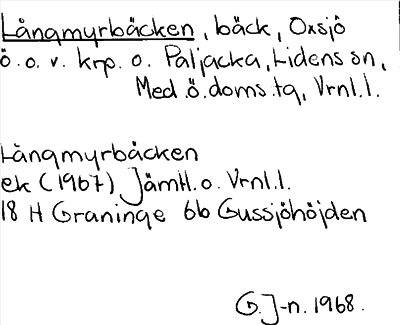 Långmyrbäcken, bäck, Oxsjö
ö.o.v. krp. o. Paljacka, Lidens sn,
Med.ö.doms.tg, Vrnl.l.
Långmyrbäcken
ek (1967) Jämtl.o. Vrnl.l.
18 H Graninge 6b Gussjöhöjden
G.J-n. 1968.